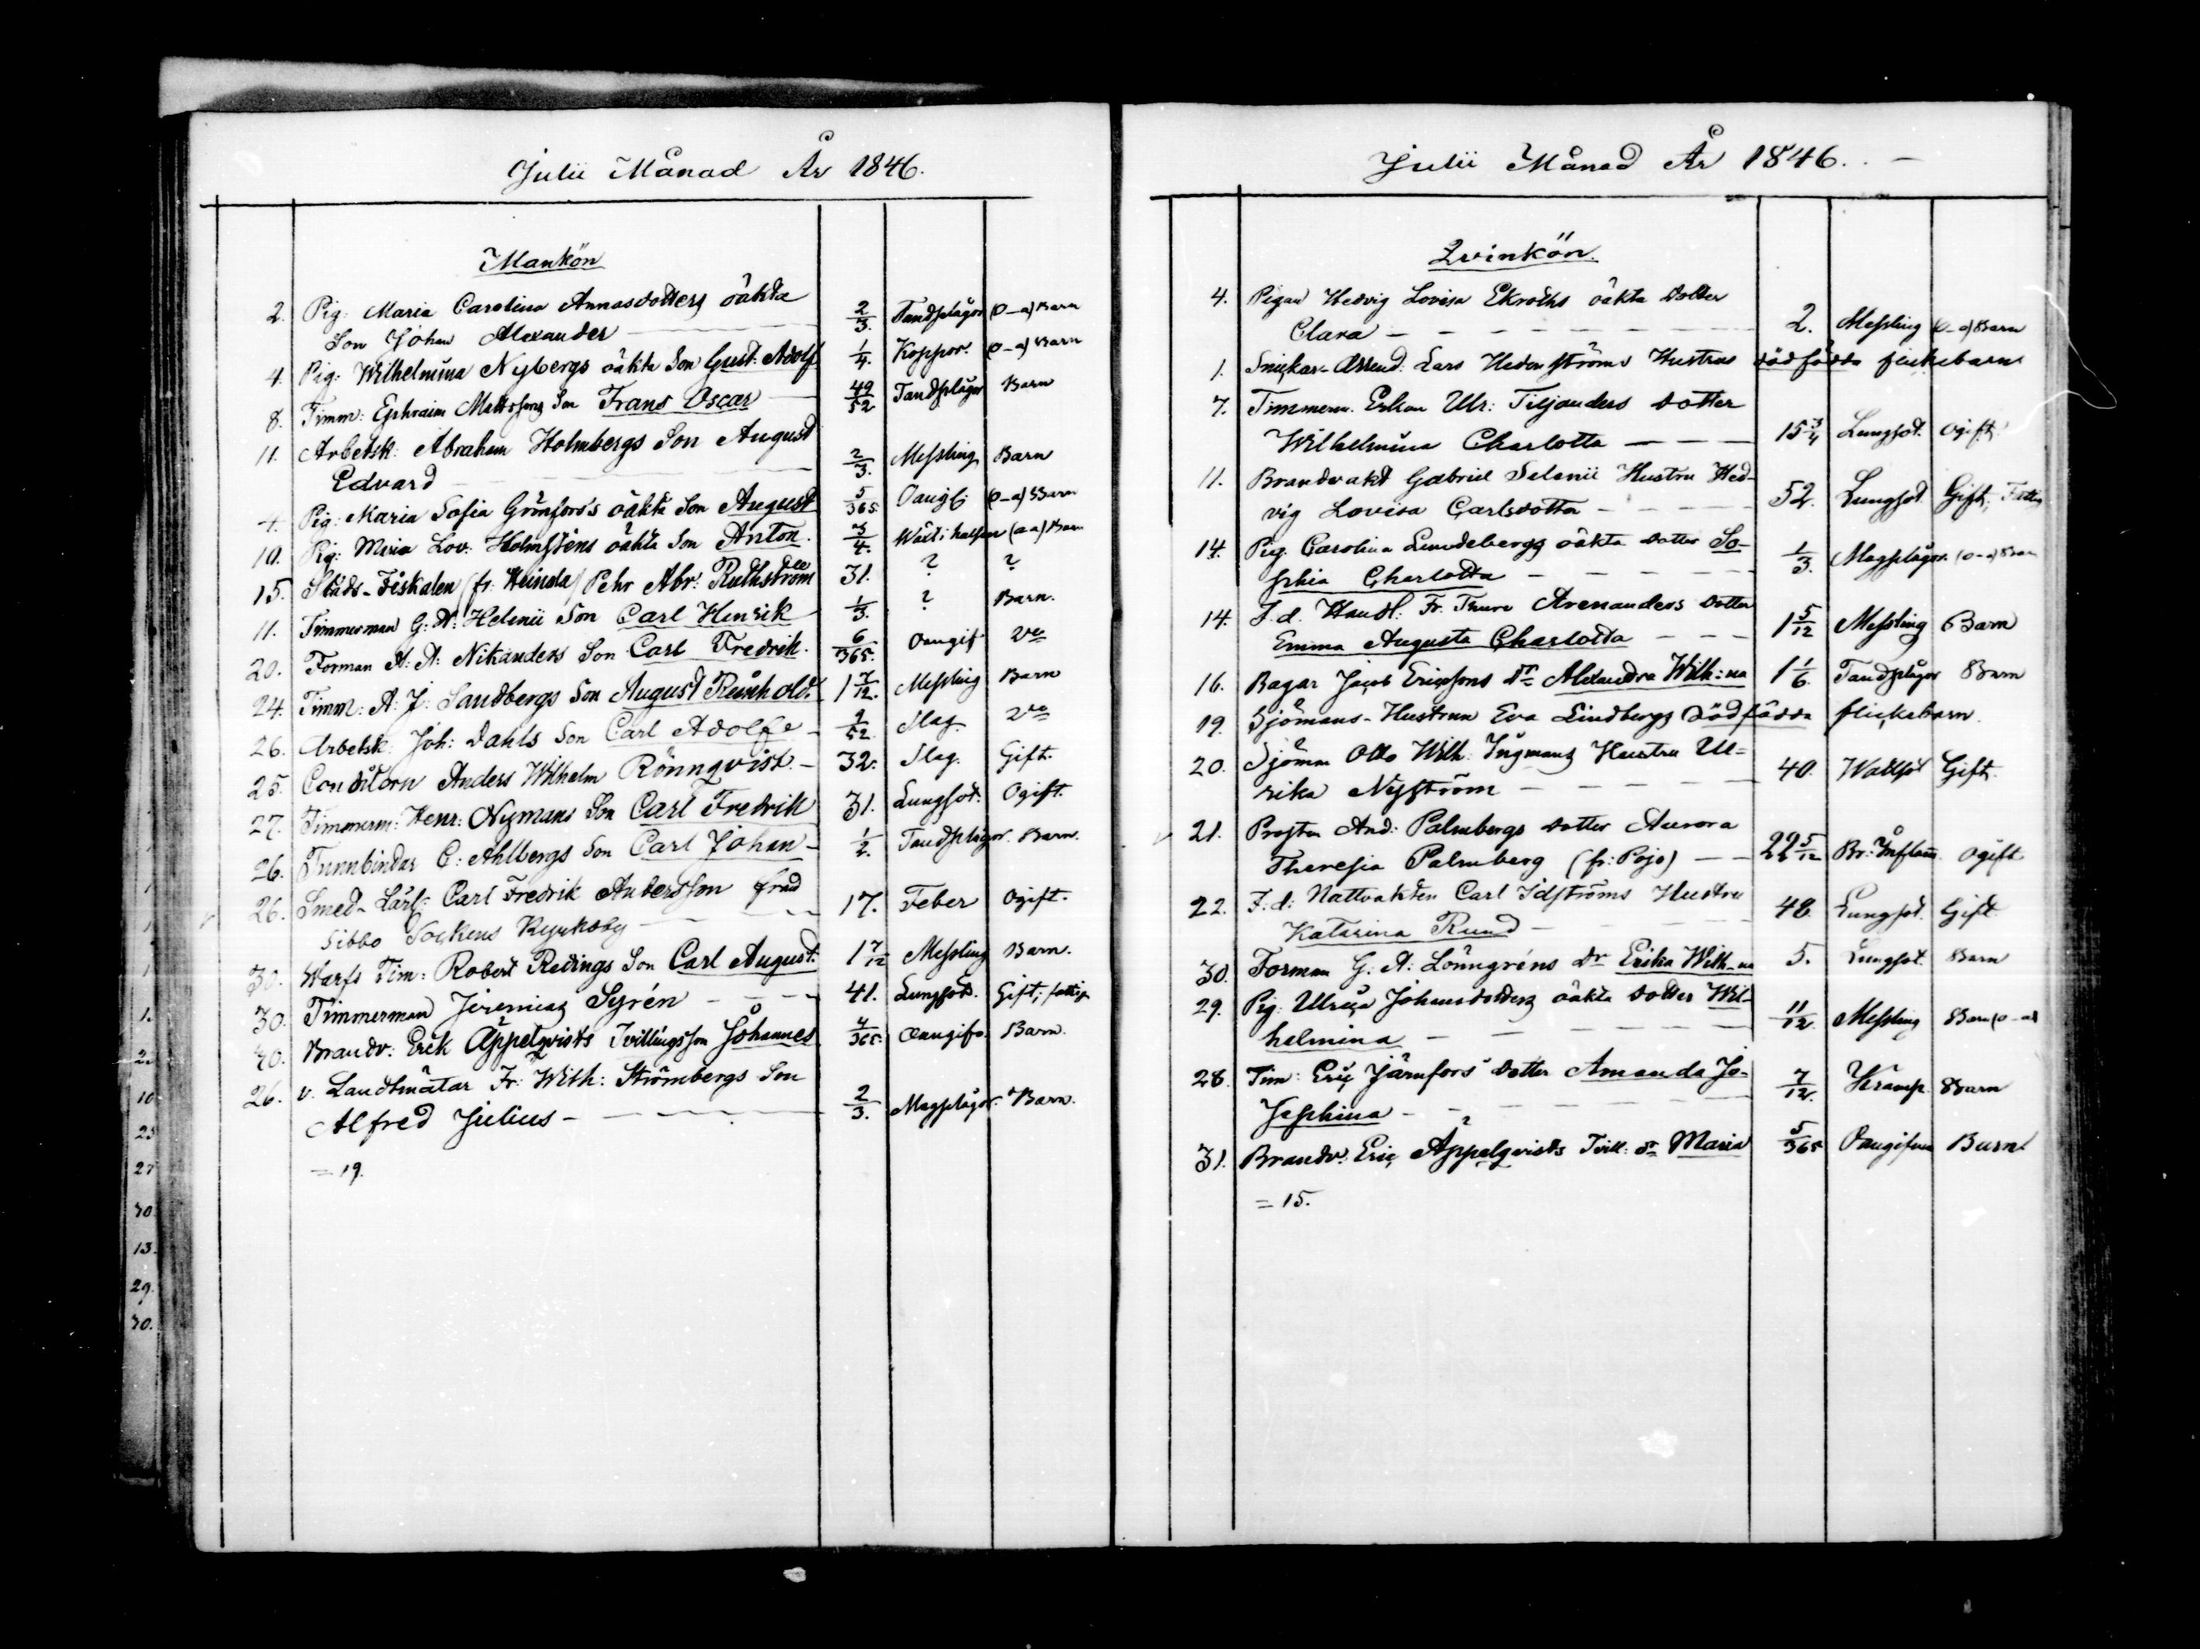 Julii Månad År 1846.
Mankön
2. Pig: Maria Carolina Annasdotters oäkta
Son Johan Alexander 2/3. Tandplågor (o-a) Barn
4. Pig: Wilhelmina Nybergs oäkta Son Gust: Adolf 1/4. Koppor. (o-a) Barn
8. Timm: Ephraim Mattssons Son Frans Oscar 49/52 Tandplågor Barn
11. Arbetsk: Abraham Holmbergs Son August
Edvard 2/3. Messling Barn
4. Pig: Maria Sofia Grönfors's oäkta Son August 5/365 Oangif: (o-a) Barn
10. Pig: Maria Lov: Holmsténs oäkta Son Anton. 3/4. Wärk i halsen (o-a) Barn
15. Stads-Fiskalen (fr: Heinola) Pehr Abr: Ruthström 31. ? ?
11. Timmerman G: W: Helenii Son Carl Henrik 1/3. ? Barn.
20. Forman A: A: Nikanders Son Carl Fredrik. 6/365. Oangif
24. Timm: A: J: Sandbergs Son August Reinhold. 1 7/12. Messling Barn
26. Arbetsk. Joh: Dahls Son Carl Adolf 1/52 Slag.
25. Conditorn Anders Wilhelm Rönnqvist. 32. Slag. Gift.
27. Timmerm: Henr: Nymans Son Carl Fredrik 31. Lungsot. Ogift.
26. Tunnbindar C: Ahlbergs Son Carl Johan 1/2. Tandplågor. Barn.
26. Smed-Lärl: Carl Fredrik Andersson från
Sibbo Sockens 17. Feber Ogift.
30. Warfs Tim: Robert Redings Son Carl August: 1 7/12 Messling Barn.
30. Timmerman Jeremias Syrén 41. Lungsot. Gift; fattig
30. Brandv: Erik Äppelqvists Tvillingsson Johannes 4/365. Oangifv. Barn.
26. v. Landtmätar Fr: Wilh: Strömbergs Son
Alfred Julius 2/3. Magplågor. Barn.
= 19.
Julii Månad År 1846.
Qvinkön.
4. Pigan Hedvig Lovisa Ekroths oäkta Dotter
Clara 2. Messling (o-a) Barn
1. Snickar-Arrend: Lars Hedenströms Hustrus dödfödda flickebarn
7. Timmerm. Erkon Ulr: Tiljanders dotter
Wilhelmina Charlotta 15 3/4 Lungsot. Ogift
11. Brandvakt Gabriel Selenii Hustru Hed-
vig Lovisa Carlsdotter 52. Lungsot Gift, Fattig
14. Pig. Carolina Lundebergs oäkta dotter So-
phia Charlotta 1/3. Magplågor. (o-a) Barn
14. F.d. Handl: Fr. Thure Arenanders dotter
Emma Augusta Charlotta 1 5/12 Messling Barn
16. Bagar Jacob Ericssons Dr Alexandra Wilh:na 1 1/6. Tandplågor Barn
19. Sjömans-Hustrun Eva Lindbergs Dödfödda flickebarn.
20. Sjöm Otto Wilh: Ingmans Hustru Ul-
rika Nyström 40. Wattsot Gift.
21. Prosten And: Palmbergs dotter Aurora
Theresia Palmberg (fr: Pojo) 22 5/12 Br: Inflam Ogift
22. F.d: Nattvakten Carl Idströms Hustru
Katarina Rund 48 Lungsot. Gift
30. Forman G: A: Lönngréns Dr Erika Wilh-na 5. Lungsot. Barn
29. Pig: Ulrica Johansdotters oäkta dotter Wil-
helmina 11/12. Messling Barn (o-a)
28. Tim: Eric Järnfors' dotter Amanda Jo-
sephina 7/12. Kramp. Barn
31. Brandv: Eric Äppelqvists Tvill: Dr Maria 5/365 Oangifven Barn
= 15.
1.
2.
10
25
27
30
13.
29.
30.